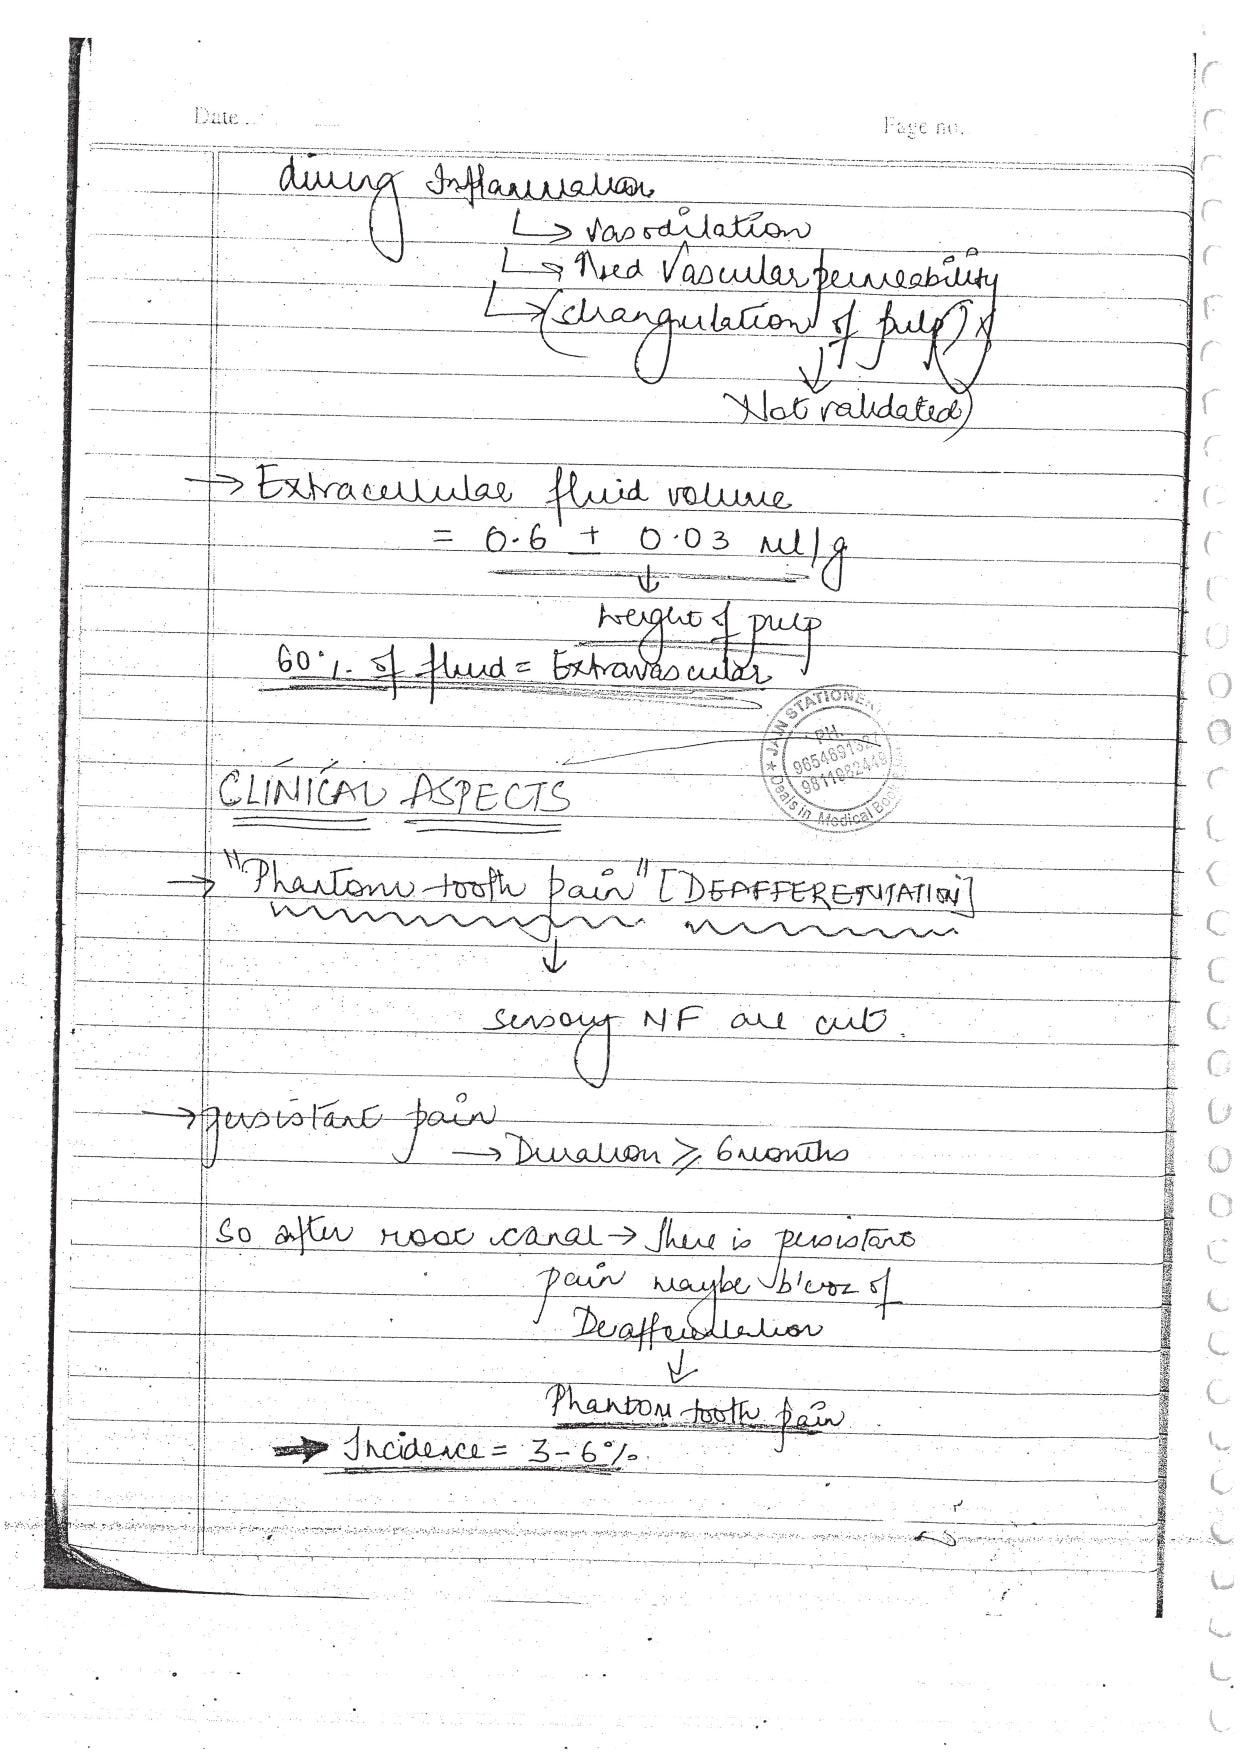 Date ..
Page no.
during Inflammation
↳ vasodilation
↳ ↑sed Vascular permeability
↳ (strangulation of pulp) x
↓
Not validated)
→ Extracellular fluid volume
= 0.6 ± 0.03 ml/g
↓
weight of pulp
60% of fluid = Extravascular
★ JAIN STATIONE
PH.
9811082448
Deals in Medical Book
CLINICAL ASPECTS
→ "Phantom tooth pain" [DEAFFERENTATION]
↓
sensory NF are cut.
→ persistant pain
→ Duration ≥ 6 months
So after root canal → there is persistant
pain maybe b'coz of
Deafferentation
↓
Phantom tooth pain
→ Incidence = 3-6%.